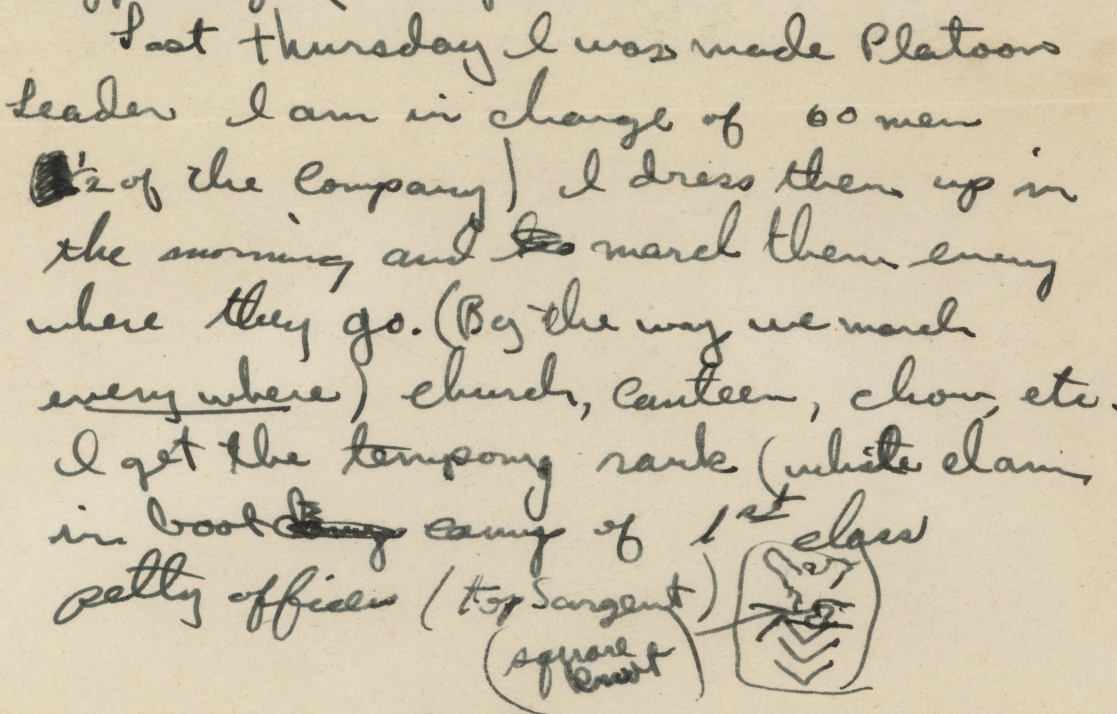 Last thursday I was made Platoon
Leader I am in charge of 60 men
1/2 of the Company) I dress them up in
the morning and march them every
where they go. (By the way we march
every where) church, canteen, chow, etc.
I get the tempory rank (while I am
in boot camp of 1st class
petty officer (top Sargent)
(square
knot